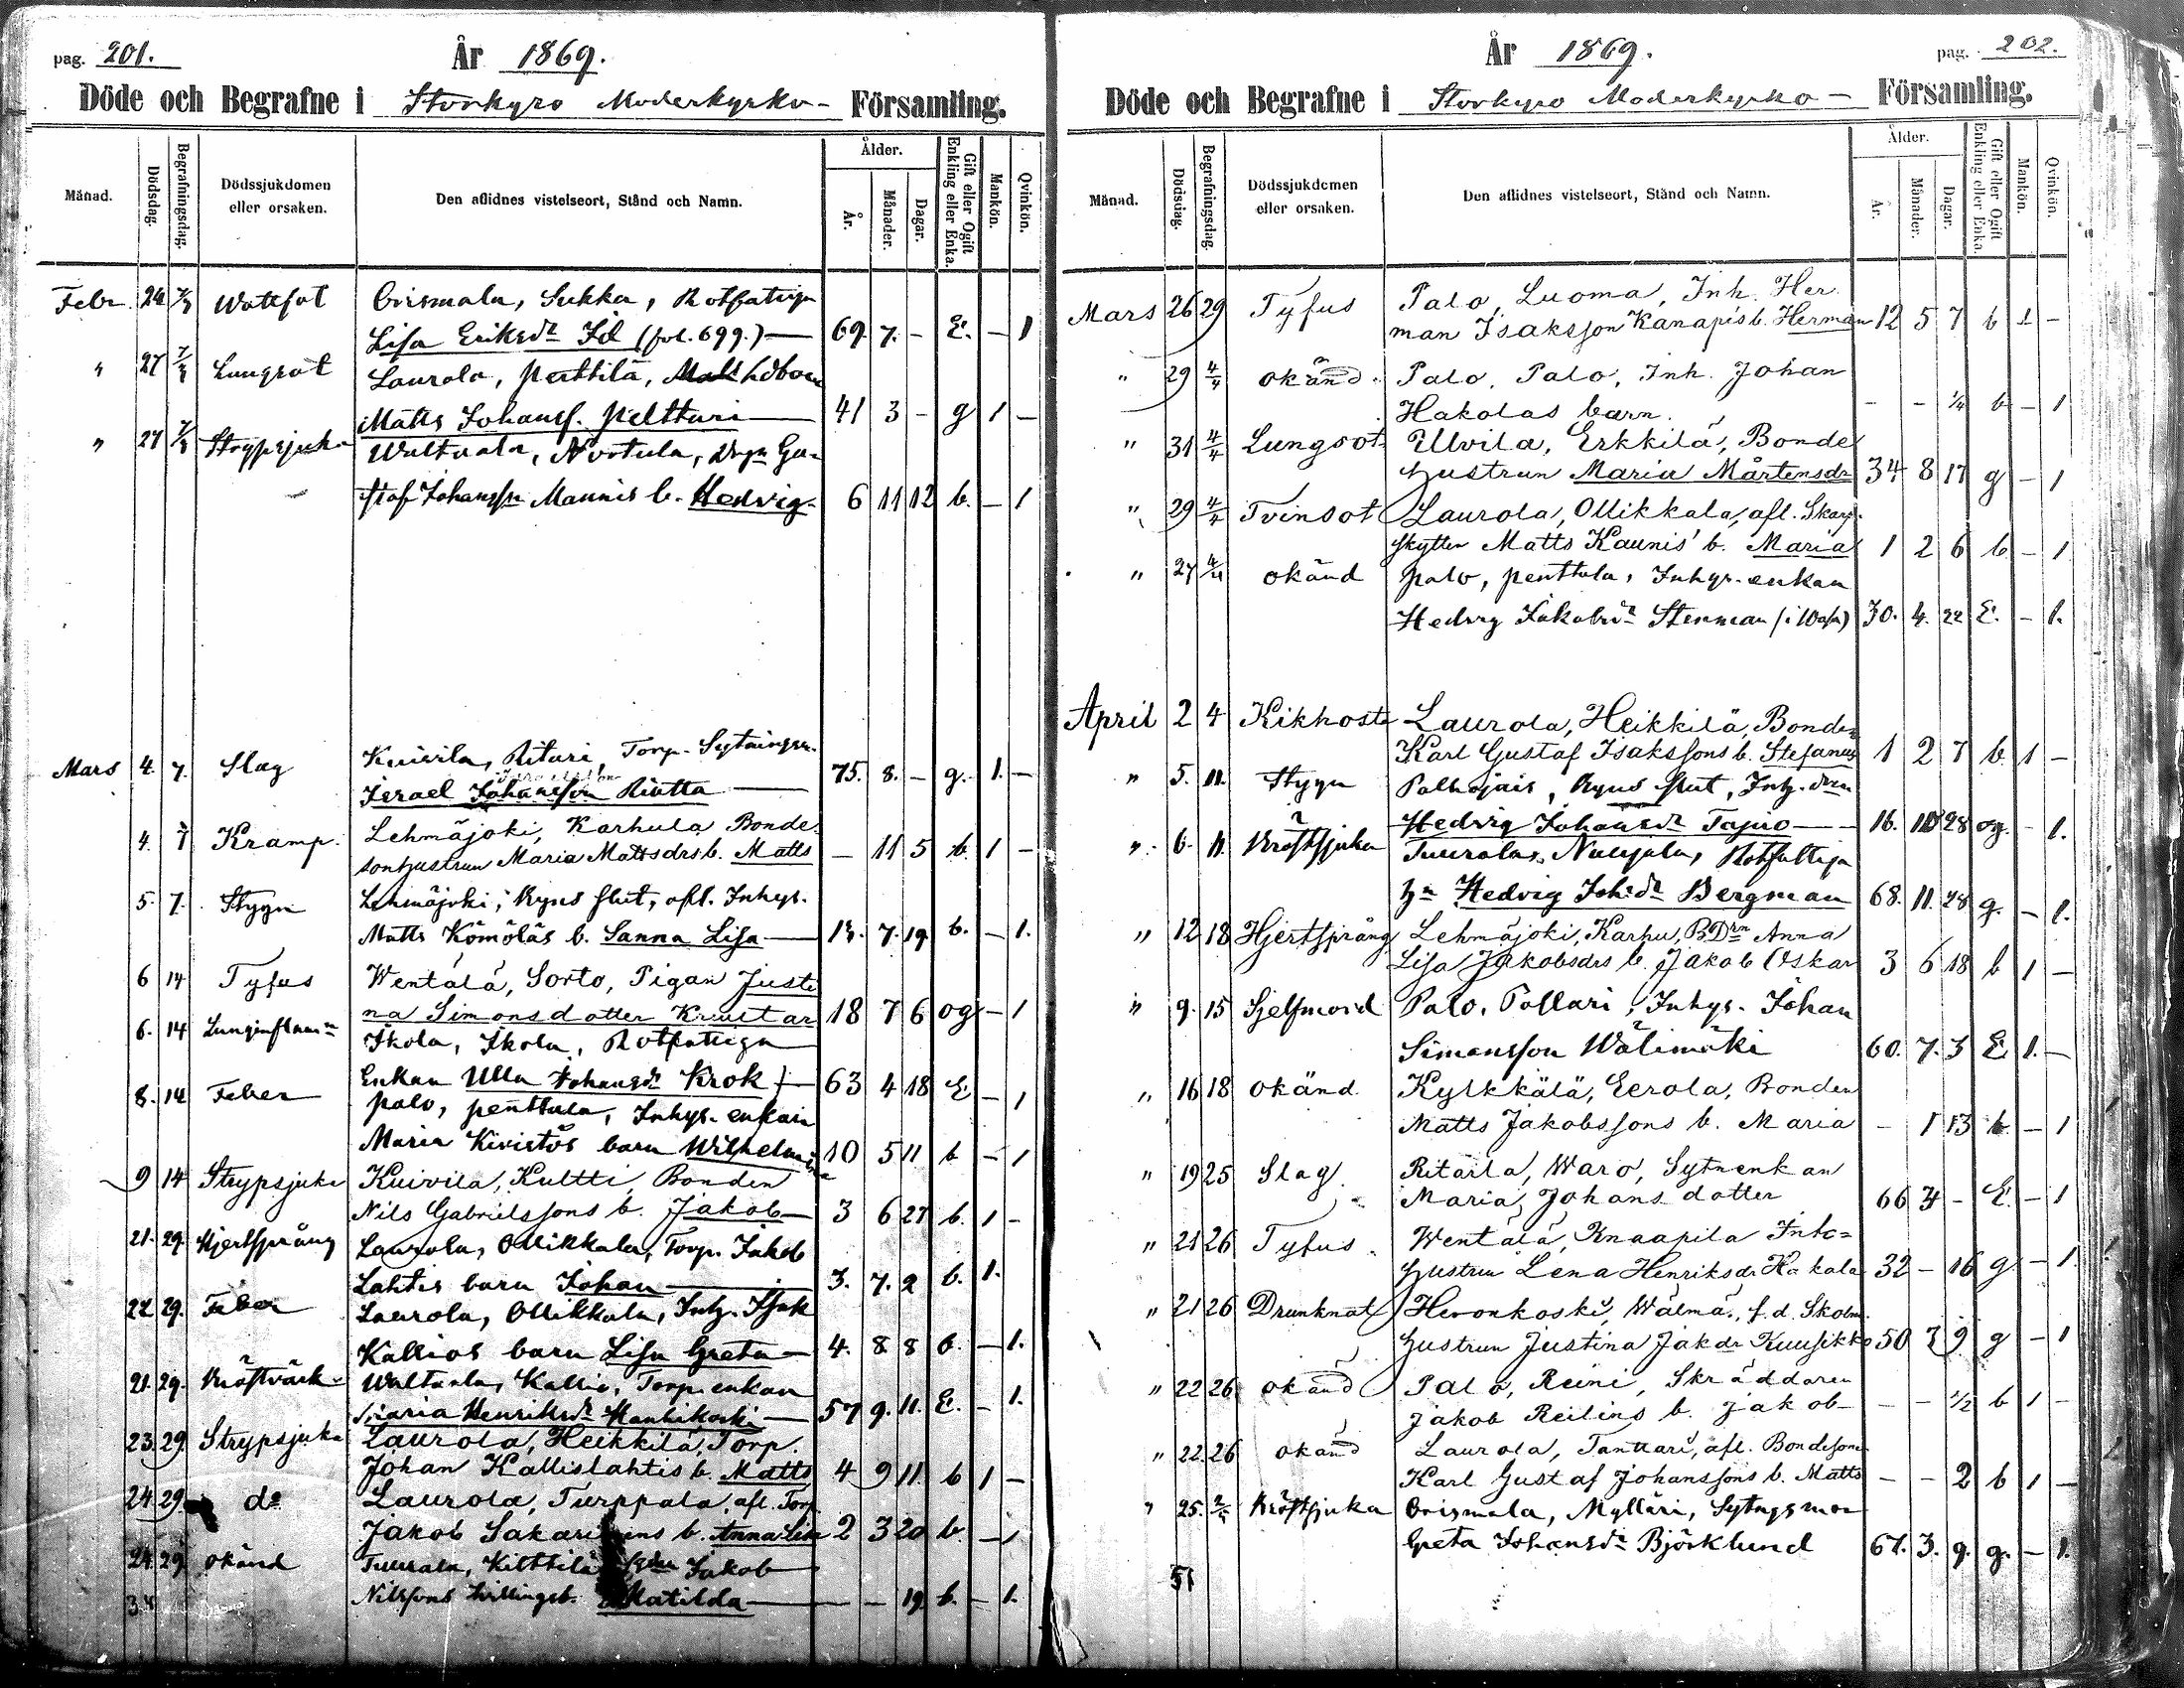 pag. 201.
År 1869.
Döde och Begrafne i Storkyro Moderkyrko- Församling.
Månad. Dödsdag. Begrafningsdag. Dödssjukdomen eller orsaken. Den aflidnes vistelseort, Stånd och Namn. Ålder. År. Månader. Dagar. Gift eller Ogift Enkling eller Enka. Mankön. Qvinkön.
Febr. 24 7/3 Wattsot Orismala, Sukka, Rotfattiga
Lisa Eriksdr (fol. 699.) — 69. 7. - E. - 1
" 27 7/3 Lungsot Laurola, Perttilä,
Matts Johanss. Peltturi — 41 3 - g 1 -
" 27 7/3 Strypsjuka Waltaala, Nortula, Gu-
staf Johanss:n Mannis b. Hedvig- 6 11 12 b. - 1
Mars 4. 7. Slag Kuivila, Ritari, Torp.
Israel Johansson Riutta — 75. 8. - g. 1. -
4. 7 Kramp. Lehmäjoki, Karhula Bonde-
sonhustrun Maria Mattsdrs b. Matts — 11 5 b. 1 -
5. 7. Stygn Lehmäjoki, Ryss Slut, afl. Inhys.
Matts Kömöläs b. Sanna Lisa — 13. 7. 19. b. - 1.
6 14 Tyfus Wentälä, Sorto, Pigan Justi
na Simonsdotter Krustar 18 7 6 og - 1
6. 14 Ikola, Ikola, Rotfattiga
Enkan Ulla Johansdr Krok 63 4 18 E - 1
8. 14 Feber Palo, Penttala, Inhys. enkan
Maria Kivistös barn Wilhelmina 10 5 11 b - 1
9 14 Strypsjuka Kuivila, Kultti, Bonden
Nils Gabrielssons b. Jakob — 3 6 27 b. 1 -
21. 29. Hjertsprång Laurola, Ollikkala, Torp. Jakob
Lahtis barn Johan — 3. 7. 2 b. 1.
22 29. Feber Laurola, Ollikkala, Inh. Isak
Kallios barn Lisa Greta — 4. 8 8 b. - 1.
21. 29. Bröstvärk Waltaala, Kallio, Torp. enkan
Maria Henriksdr Hanhikoski — 57 9. 11. E. - 1.
23. 29 Strypsjuka Laurola, Heikkilä, Torp.
Johan Kallislahtis b. Matts 4 9 11 b 1 -
24 29 do Laurola, Turppala, afl. Torp
Jakob b. Anna Lisa 2 3 20 b. - 1
24. 29. okänd Tuurala, Kitttilä Jakob
Nilssons tvillingsb. Matilda — - - 19. b. - 1.
pag. 202.
År 1869.
Döde och Begrafne i Storkyro Moderkyrko- Församling.
Månad. Dödsdag. Begrafningsdag. Dödssjukdomen eller orsaken. Den aflidnes vistelseort, Stånd och Namn. Ålder. År. Månader. Dagar. Gift eller Ogift Enkling eller Enka. Mankön. Qvinkön.
Mars 26 29 Tyfus Palo, Luoma, Inh. Her-
man Isaksson Kanapis b. Herman 12 5 7 b 1 -
" 29 4/4 okänd. Palo, Palo, Inh. Johan
Hakolas barn. - - 1/4 b - 1
" 31 4/4 Lungsot Ulvila, Erkkilä, Bonde
hustrun Maria Mårtensdr 34 8 17 g - 1
" 29 4/4 Tvinsot Laurola, Ollikkala, afl. Skarp-
skytten Matts Kaunis' b. Maria 1 2 6 b - 1
" 27 4/4 okänd Palo, Penttala, Inhys. enkan
Hedvig Jakobsdr Stenman 30. 4. 22 E. - 1.
April 2 4 Kikhosta Laurola, Heikkilä, Bonden
Karl Gustaf Isakssons b. Stefanus 1 2 7 b. 1 -
" 5. 11. Stygn Palhojais, Ryss Slut,
Hedvig Johansdr Tapio — 16. 10 28 og. - 1.
" 6. 11. Bröstsjuka Tuurala, Nuujala, Rotfattiga
Hedvig Joh:sdr Bergman 68. 11. 28 g. - 1.
" 12 18 Hjertsprång Lehmäjoki, Karhu, BDrn Anna
Lisa Jakobsdrs b. Jakob Oskar 3 6 18 b 1 -
" 9. 15 Sjelfmord Palo, Pollari, Inhys. Johan
Simonsson Wälimäki 60. 7. 3 E 1. -
" 16 18 okänd Kylkkälä, Eerola, Bonden
Matts Jakobssons b. Maria - 1 13 b. - 1
" 19 25 Slag Ritarla, Waro, Sytnenkan
Maria Johansdotter 66 4 - E. - 1
" 21 26 Tyfus Wentälä, Knaapila Inh=
hustrun Lena Henriksdr Hakala 32 - 16 g - 1
" 21 26 Drunknat Hevonkoski, Wälmä, f.d. Skolm.
hustrun Justina Jakdr Kuusikko 50 7 9 g - 1
" 22 26 okänd Palo, Reini, Skräddaren
Jakob Reilins b. Jakob - - - 1/2 b 1 -
" 22. 26 okänd Laurola, Tanttari, afl. Bondeson
Karl Gustaf Johanssons b. Matts - - 2 b 1 -
" 25. 2/5 Bröstsjuka Orismala, Mylläri, Sytngsmor
Greta Johansdr Björklund 67. 3. 9. g. - 1.
51